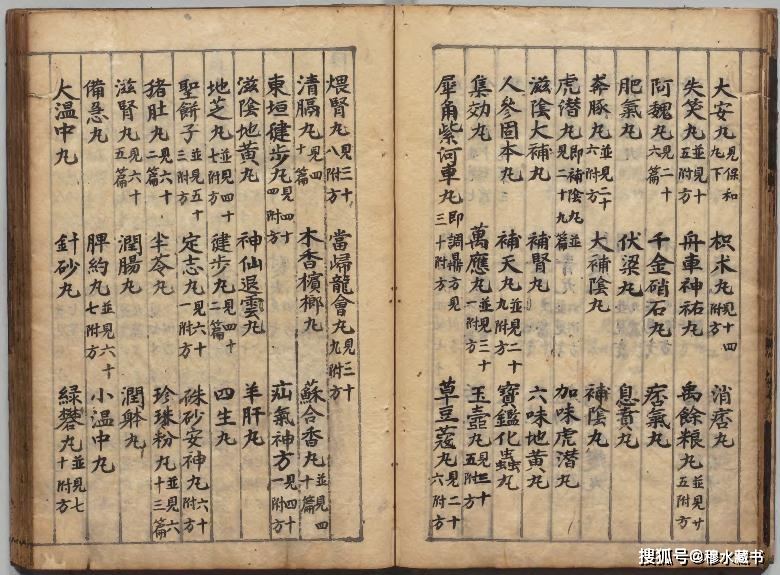 大安丸見保和丸下 枳朮丸見十四附方 消痞丸
失笑丸並見十五附方 舟車神祐丸 禹餘粮丸並見廿五附方
阿魏丸見二十六篇 千金硝石丸 痞氣丸
肥氣丸 伏梁丸 息賁丸
奔豚丸並見二十六附方 大補陰丸 補陰丸
虎潛丸即補陰丸並見二十九篇 加味虎潛丸
滋陰大補丸 補腎丸 六味地黄丸
人參固本丸 補天丸並見二十九附方 寶鑑化蟲丸
集効丸 萬應丸並見三十一附方 玉壺丸見三十五附方
犀角紫河車丸即調鼎方見三十附方 草豆蔻丸見二十六附方
煨腎丸見三十八附方 當歸龍會丸見三十九附方
清膈丸見四十 木香檳榔丸 蘇合香丸並見四十篇
東垣健步丸見四十四附方 疝氣神方見四十一附方
滋陰地黄丸 神仙退雲丸 羊肝丸
地芝丸並見四十七附方 健步丸見四十二篇 四生丸
聖餅子並見五十三附方 定志丸見六十一附方 硃砂安神丸六十附方
猪肚丸見六十二篇 半苓丸 珍珠粉丸並見六十三篇
滋腎丸見六十五篇 潤腸丸 潤躰丸
備急丸 脾約丸並見六十七附方 小温中丸
大温中丸 針砂丸 緑礬丸並見七十附方
搜狐号@穆水藏书